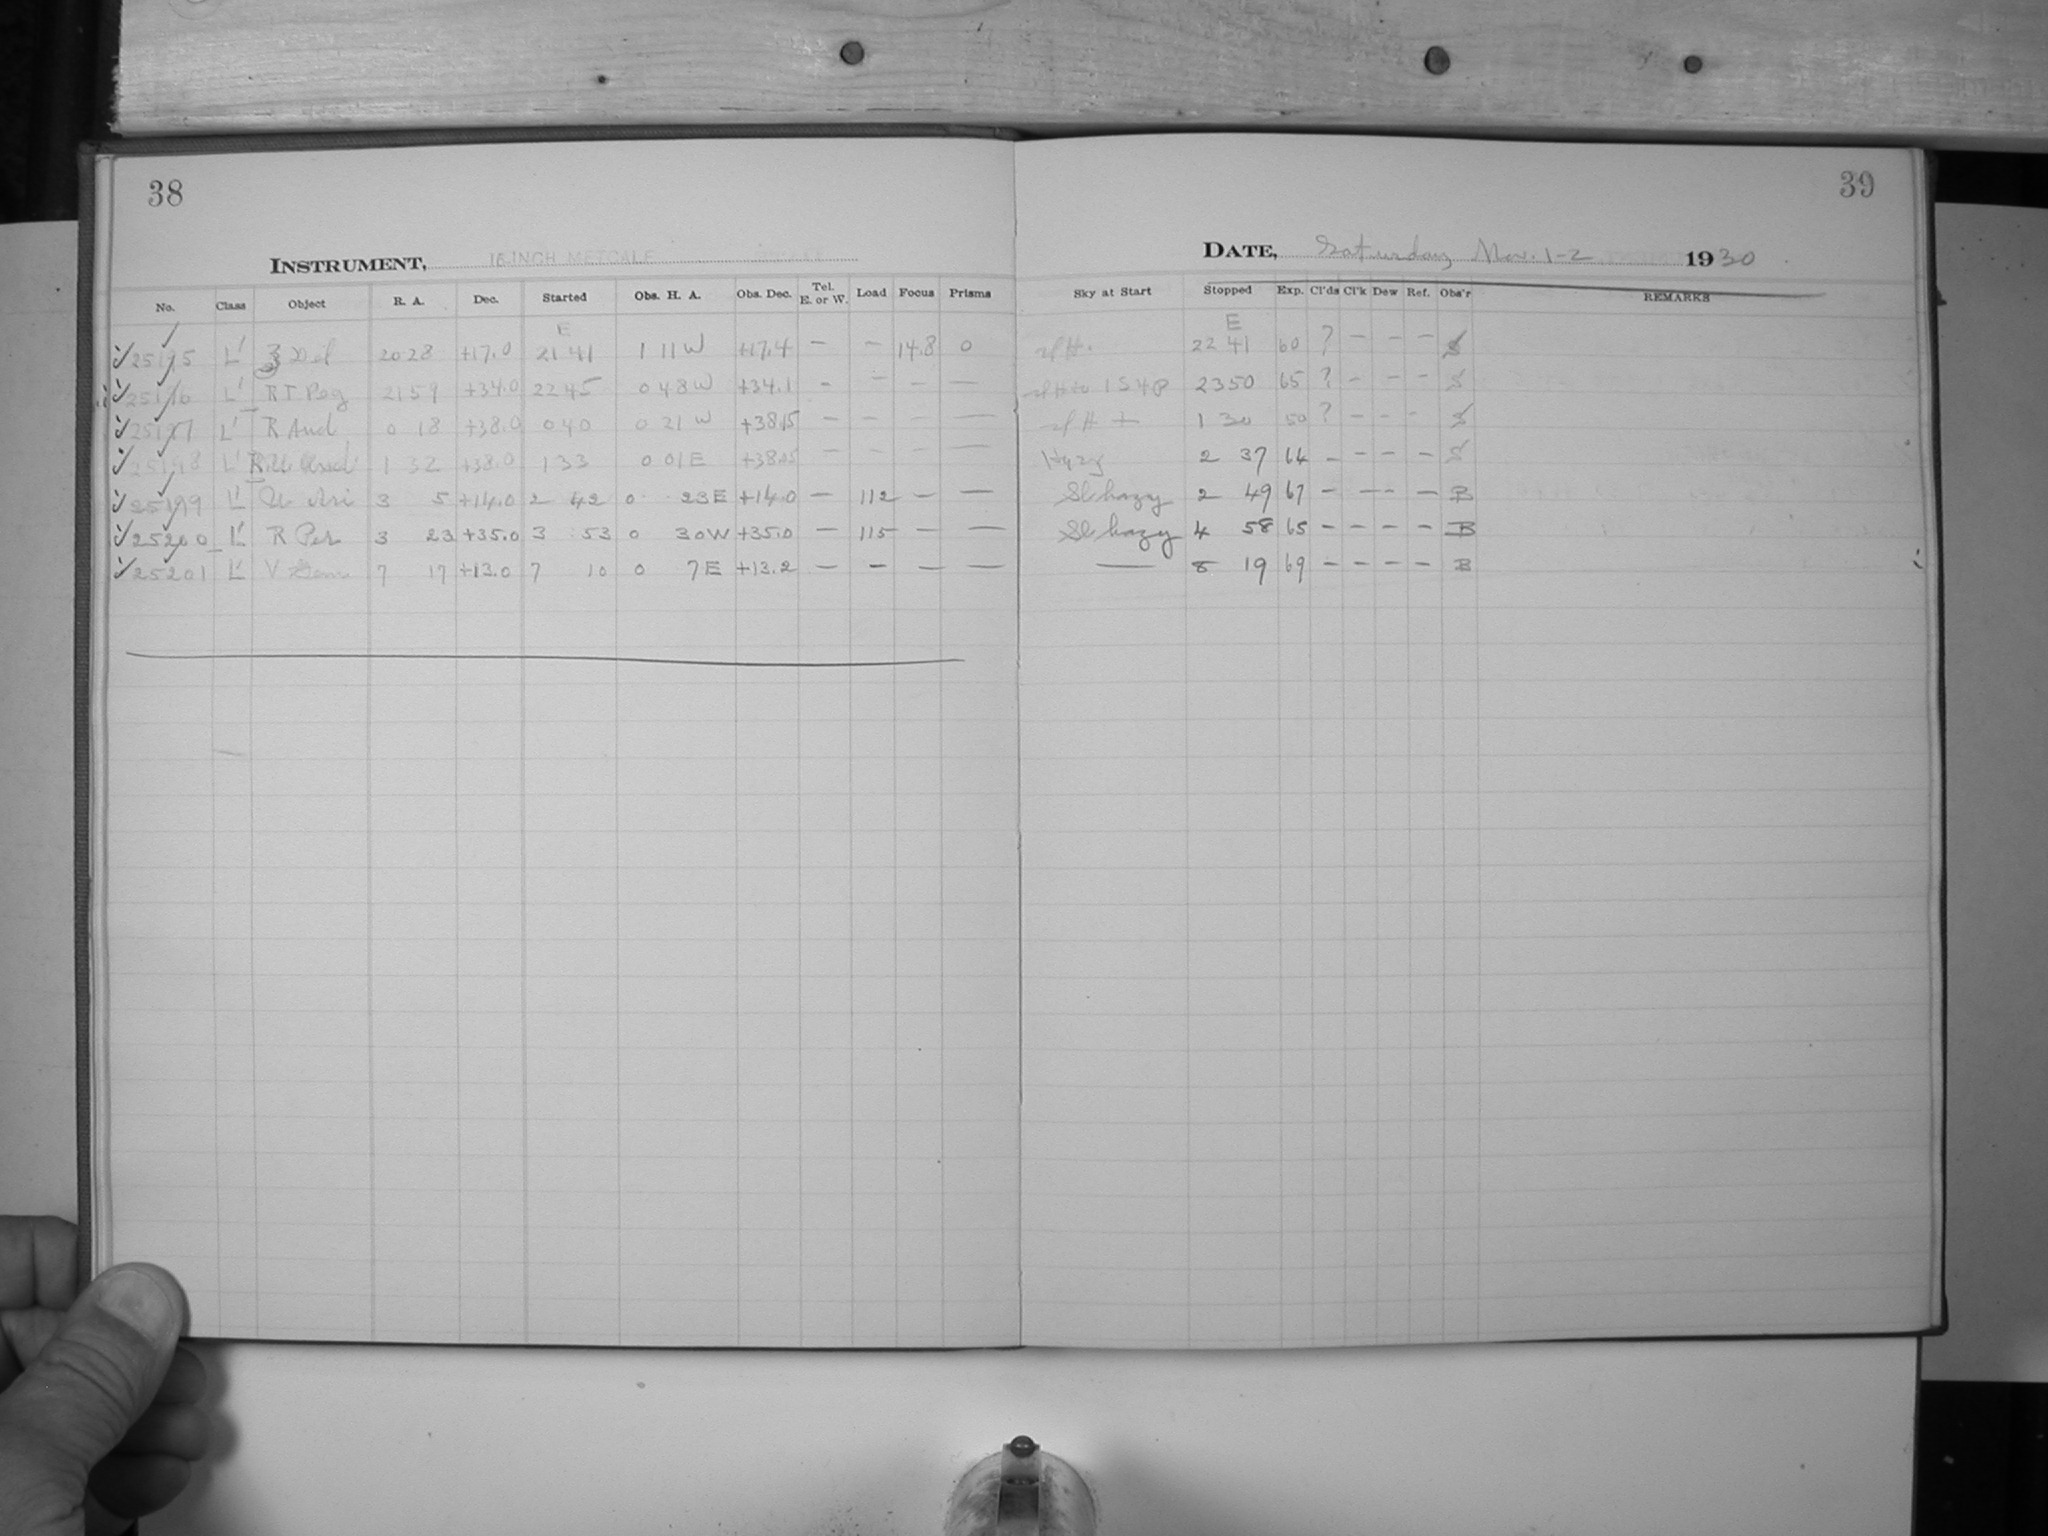 38
INSTRUMENT, 16-INCH METCALF
No. Class Object R. A. Dec. Started Obs. H. A. Obs. Dec. Tel. E. or W. Load Focus Prisms
E
25195 L' Z Del 20 28 +17.0 21 41 1 11 W +17.4 — — 14.8 0
25196 L' RT Peg 21 59 +34.0 22 45 0 48 W +34.1 — — — —
25197 L' R And 0 18 +38.0 0 40 0 21 W +38.15 — — — —
25198 L' 1 32 +38.0 1 33 0 01 E — — — —
25199 L' U Ari 3 5 +14.0 2 42 0 23 E +14.0 — 112 — —
25200 L' R Per 3 23 +35.0 3 53 0 30 W +35.0 — 115 — —
25201 L' V Gem 7 17 +13.0 7 10 0 7 E +13.2 — — — —
39
DATE, Saturday Nov. 1-2 1930
Sky at Start Stopped Exp. Cl'ds Cl'k Dew Ref. Obs'r REMARKS
E
22 41 60 ? — — — S
23 50 65 ? — — — S
1 30 50 ? — — — S
Hazy 2 37 64 — — — — S
Sl hazy 2 49 67 — — — — B
Sl hazy 4 58 65 — — — — B
— 8 19 69 — — — — B